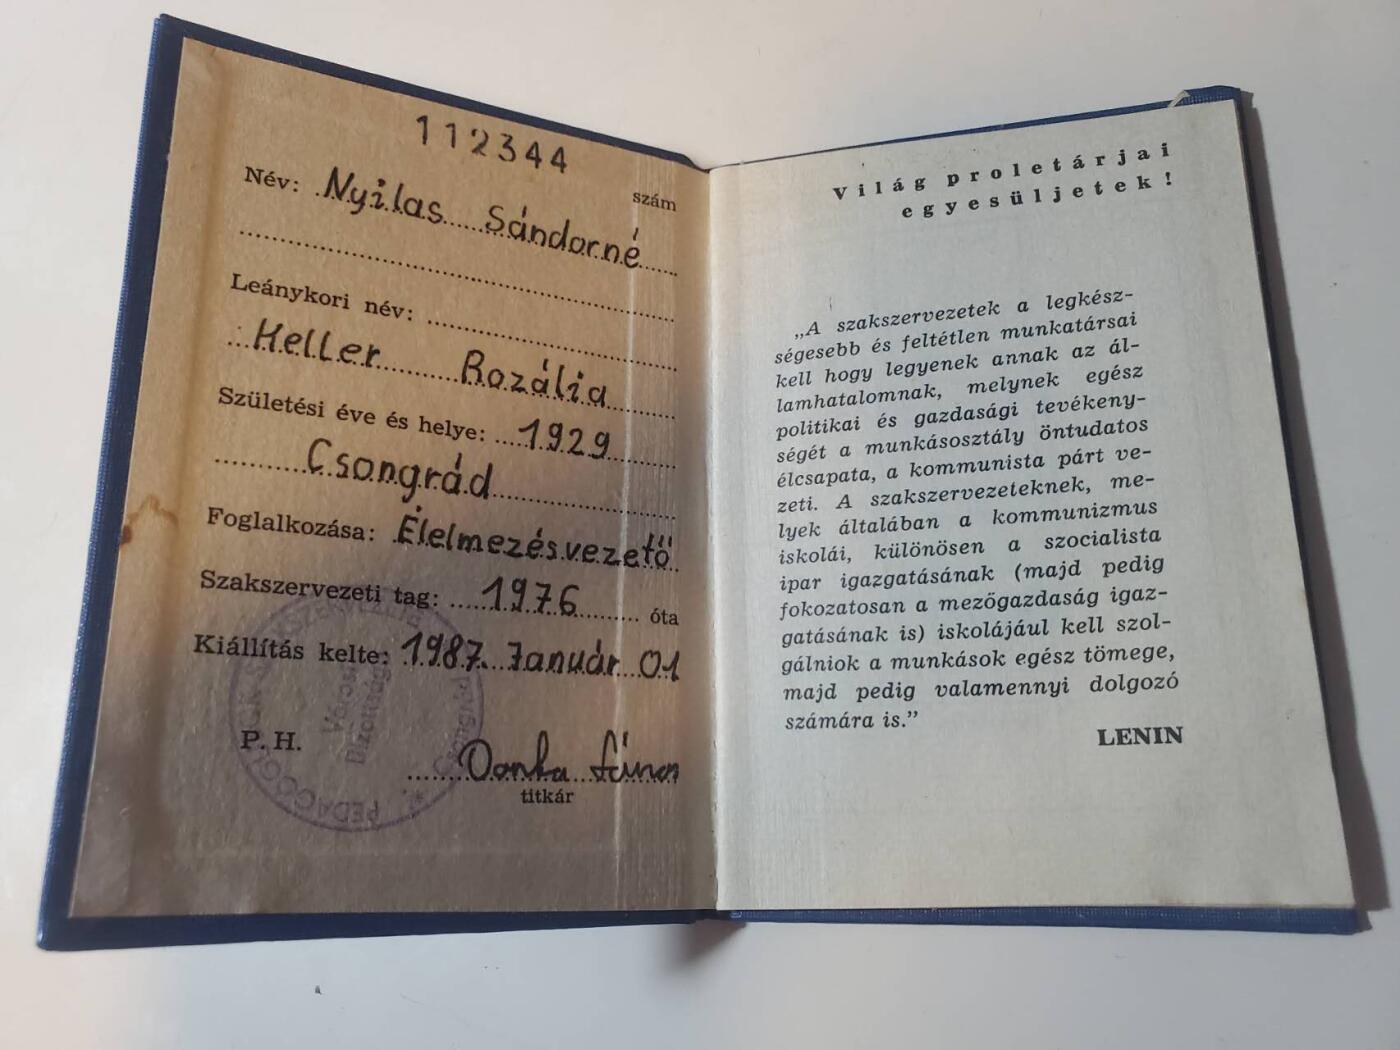 112344
szám
Név: Nyilas Sándorné
Leánykori név:
Heller Rozália
Születési éve és helye: 1929
Csongrád
Foglalkozása: Élelmezésvezető
Szakszervezeti tag: 1976 óta
Kiállítás kelte: 1987. Január 01
P. H.
titkár
PEDAGÓGUSOK SZAKSZERVEZETE
Városi
Bizottság
Világ proletárjai
egyesüljetek!
„A szakszervezetek a legkész-
ségesebb és feltétlen munkatársai
kell hogy legyenek annak az ál-
lamhatalomnak, melynek egész
politikai és gazdasági tevékeny-
ségét a munkásosztály öntudatos
élcsapata, a kommunista párt ve-
zeti. A szakszervezeteknek, me-
lyek általában a kommunizmus
iskolái, különösen a szocialista
ipar igazgatásának (majd pedig
fokozatosan a mezőgazdaság igaz-
gatásának is) iskolájául kell szol-
gálniok a munkások egész tömege,
majd pedig valamennyi dolgozó
számára is.”
LENIN